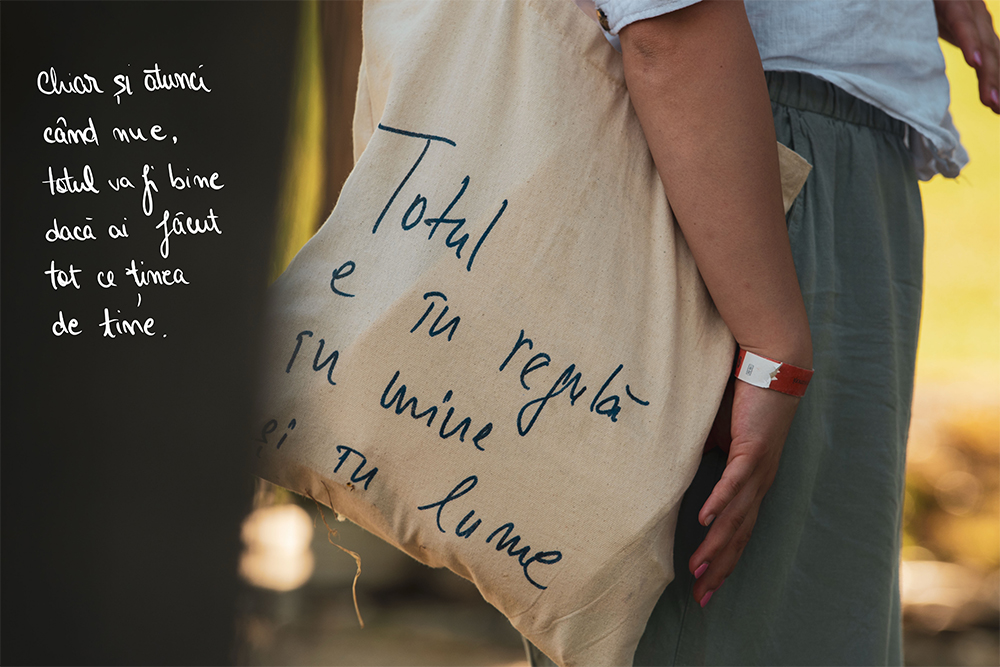 Chiar și atunci
când nu e,
totul va fi bine
dacă ai făcut
tot ce ținea
de tine.
Totul
e în regulă
în mine
și în lume